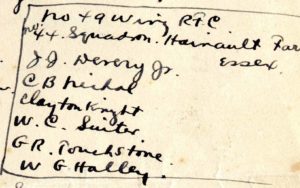 No 49 Wing RFC
No: 44. Squadron. Hainault Far
Essex
J. J. Devery Jr.
C B Nichol
Clayton Knight
W. C. Suiter
G R. Touchstone.
W G Halley.